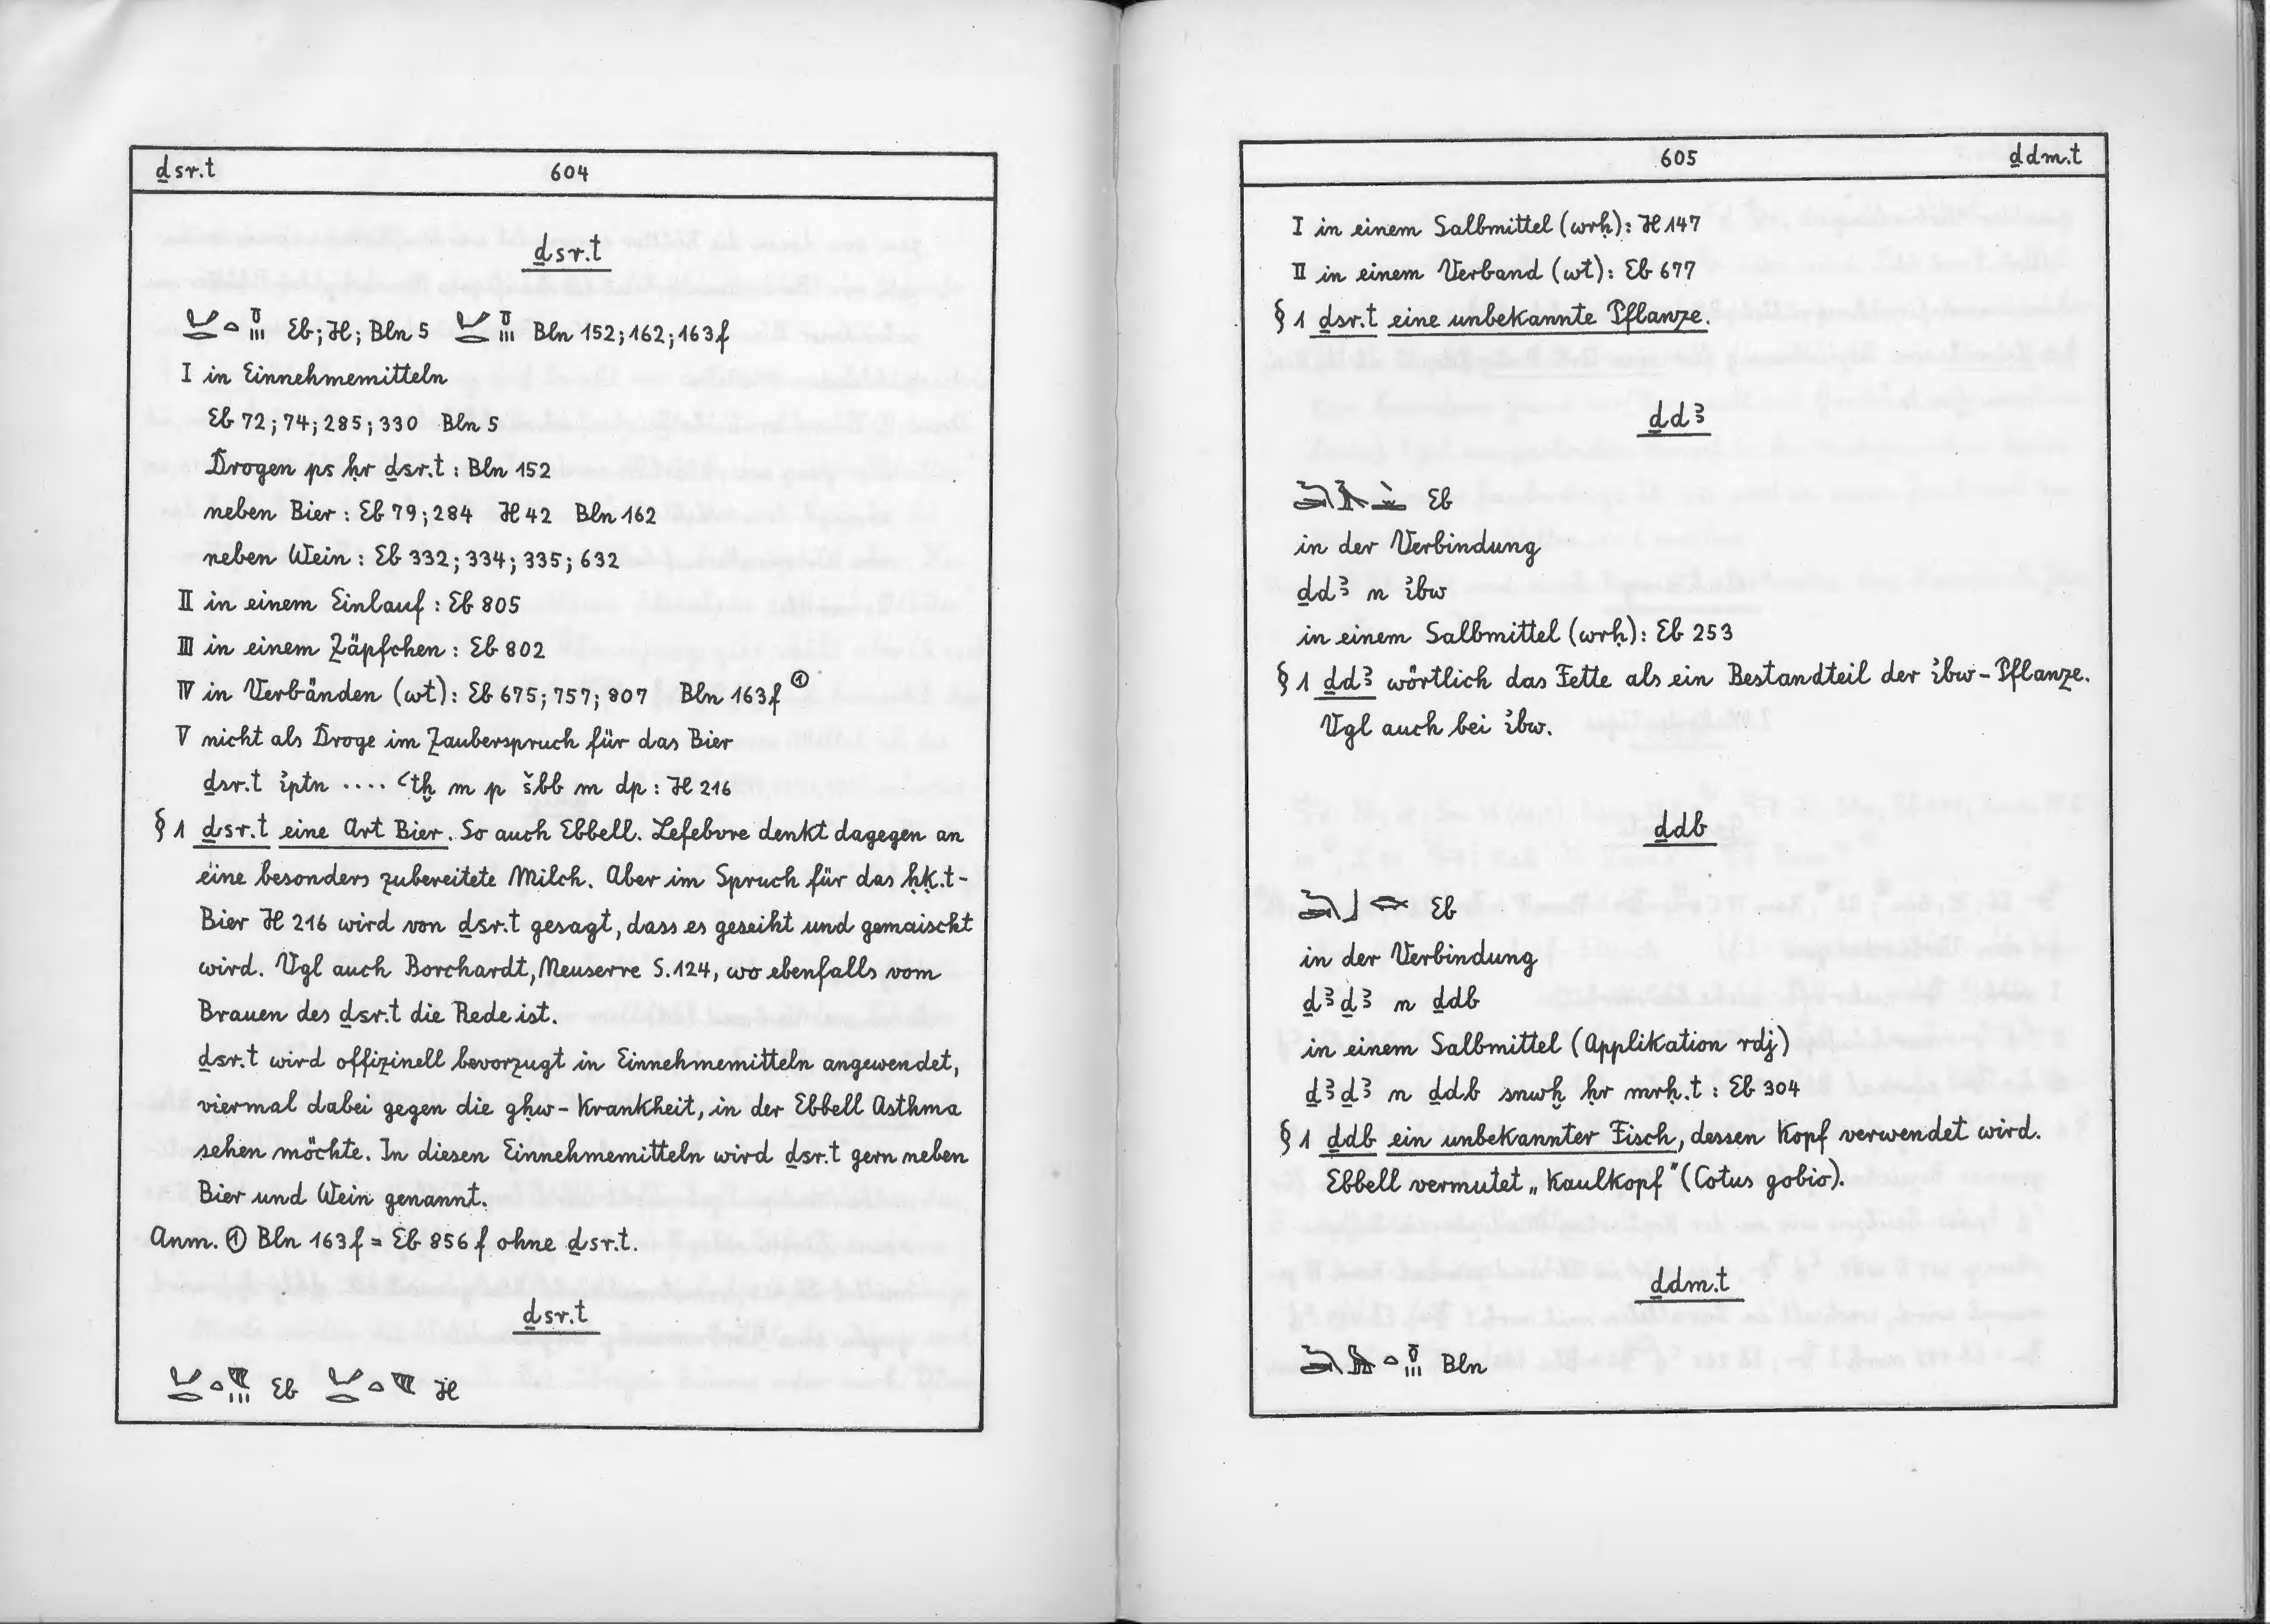 ḏsr.t 604
ḏsr.t
Eb; H; Bln 5 Bln 152; 162; 163f
I in Einnehmemitteln
Eb 72; 74; 285; 330 Bln 5
Drogen ps ḥr ḏsr.t : Bln 152
neben Bier : Eb 79; 284 H 42 Bln 162
neben Wein : Eb 332; 334; 335; 632
II in einem Einlauf : Eb 805
III in einem Zäpfchen : Eb 802
IV in Verbänden (wt) : Eb 675; 757; 807 Bln 163f ①
V nicht als Droge im Zauberspruch für das Bier
ḏsr.t ỉptn .... ꜥtḫ m p šbb m dp : H 216
§ 1 ḏsr.t eine Art Bier. So auch Ebbell. Lefebvre denkt dagegen an
eine besonders zubereitete Milch. Aber im Spruch für das ḥḳ.t-
Bier H 216 wird von ḏsr.t gesagt, dass es geseiht und gemaischt
wird. Vgl auch Borchardt, Neuserre S. 124, wo ebenfalls vom
Brauen des ḏsr.t die Rede ist.
ḏsr.t wird offizinell bevorzugt in Einnehmemitteln angewendet,
viermal dabei gegen die gḥw-Krankheit, in der Ebbell Asthma
sehen möchte. In diesen Einnehmemitteln wird ḏsr.t gern neben
Bier und Wein genannt.
Anm. ① Bln 163f = Eb 856f ohne ḏsr.t.
ḏsr.t
Eb H
605 ḏdm.t
I in einem Salbmittel (wrḥ): H 147
II in einem Verband (wt): Eb 677
§ 1 ḏsr.t eine unbekannte Pflanze.
ḏdꜣ
Eb
in der Verbindung
ḏdꜣ n ỉbw
in einem Salbmittel (wrḥ): Eb 253
§ 1 ḏdꜣ wörtlich das Fette als ein Bestandteil der ỉbw-Pflanze.
Vgl auch bei ỉbw.
ḏdb
Eb
in der Verbindung
ḏꜣḏꜣ n ḏdb
in einem Salbmittel (Applikation rdj)
ḏꜣḏꜣ n ḏdb snwḫ ḥr mrḥ.t : Eb 304
§ 1 ḏdb ein unbekannter Fisch, dessen Kopf verwendet wird.
Ebbell vermutet „Kaulkopf" (Cotus gobio).
ḏdm.t
Bln